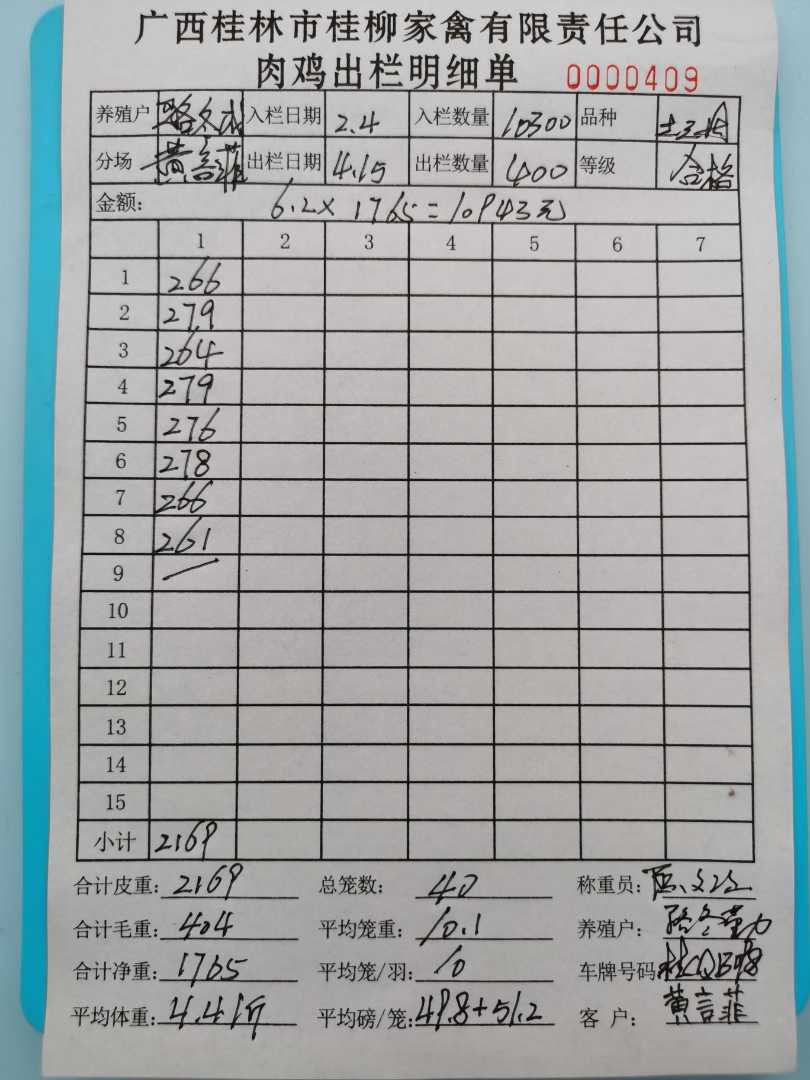 广西桂林市桂柳家禽有限责任公司
肉鸡出栏明细单 0000409
养殖户 入栏日期 2.4 入栏数量 10300 品种
分场 黄言菲 出栏日期 4.15 出栏数量 400 等级 合格
金额: 6.2× 1765=10943元
1 2 3 4 5 6 7
1 266
2 279
3 264
4 279
5 276
6 278
7 266
8 261
9
10
11
12
13
14
15
小计 2169
合计皮重: 2169 总笼数: 40 称重员:
合计毛重: 404 平均笼重: 10.1 养殖户:
合计净重: 1765 平均笼/羽: 10 车牌号码
平均体重: 4.41斤 平均磅/笼: 49.8+51.2 客 户: 黄言菲